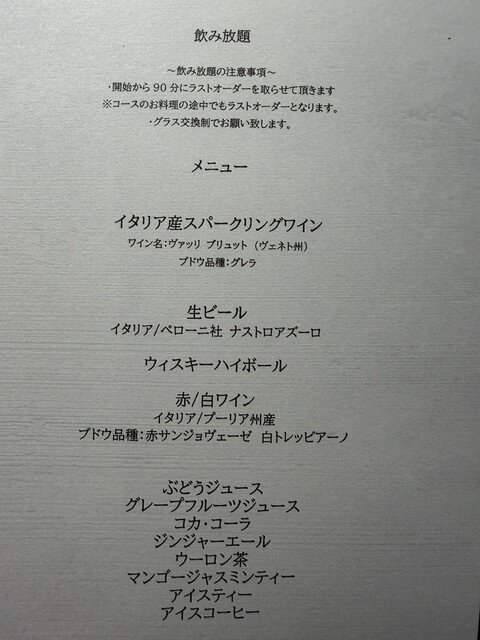 飲み放題
～飲み放題の注意事項～
・開始から90分にラストオーダーを取らせて頂きます
※コースのお料理の途中でもラストオーダーとなります。
・グラス交換制でお願い致します。
メニュー
イタリア産スパークリングワイン
ワイン名：ヴァッリ ブリュット（ヴェネト州）
ブドウ品種：グレラ
生ビール
イタリア/ペローニ社 ナストロアズーロ
ウィスキーハイボール
赤/白ワイン
イタリア/プーリア州産
ブドウ品種：赤サンジョヴェーゼ 白トレッビアーノ
ぶどうジュース
グレープフルーツジュース
コカ・コーラ
ジンジャーエール
ウーロン茶
マンゴージャスミンティー
アイスティー
アイスコーヒー